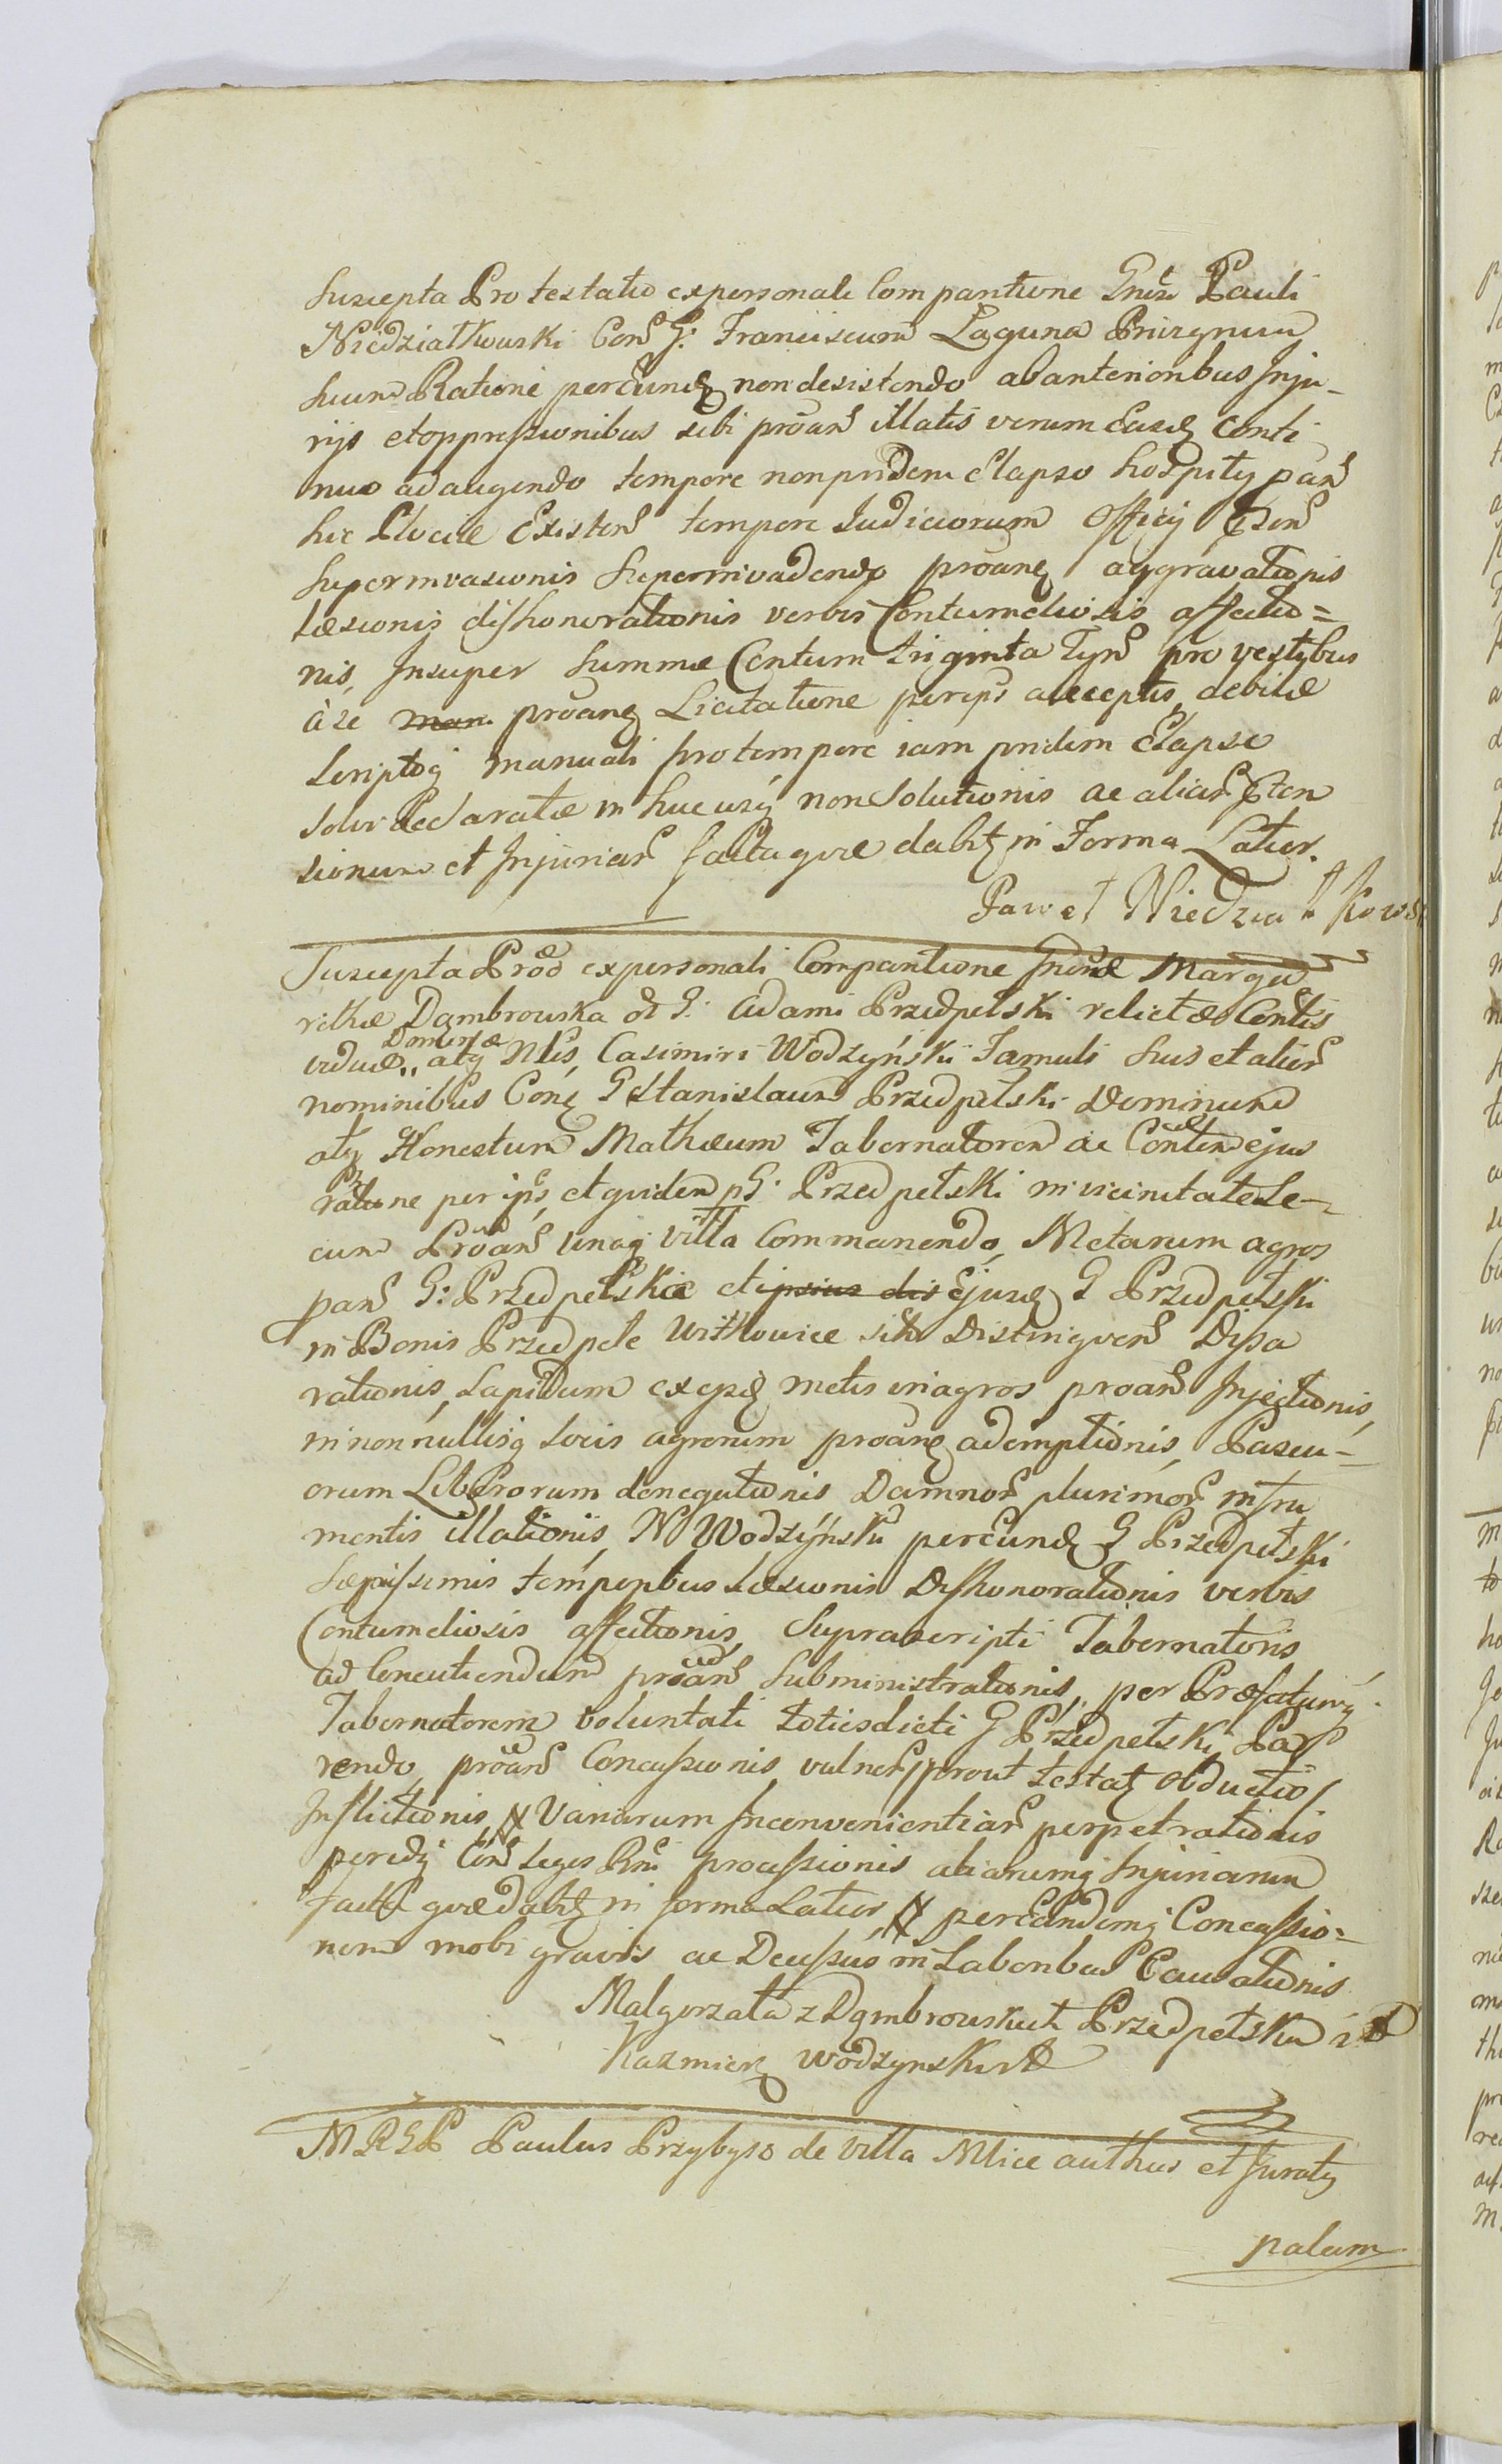 Suscepta Protestatio ex personali Comparitione Gnosi Pauli
Niedziałkowski Con̄ G. Franciscum Łaguna Privignum
suum Ratione per eund̄ non desistendo ab anterioribus Inju-
rijs et oppressionibus sibi proan̄ illatis verum Easd̄ Conti
nuo adaugendo tempore non pridem Elapso hospity pan̄
hic Plociæ Existen̄ tempore Iudiciorum Officij
Superinvasionis Superinvadendo proanq̄ aggravationis
Læsionis dishonorationis verbis Contumeliosis affectio=
nis, Insuper Summæ Centum triginta Tyn̄ pro vestybus
à se proanq̄ Licitatione per ips̄ acceptis, debitæ
Scriptoq̄ manuali pro tempore iam pridem Elapso
solvi declaratæ in huc usq̄ non Solutionis ac aliar̄
sionum et Injuriar̄ facta quæ dabt̄ in Forma Latior.
Paweł Niedziałkowski
Suscepta Prõõ ex personali Comparitione Gnosæ Marga
rithæ Dąmbrowska ol G. Adami Przedpełski relictæ Contis
viduæ,, Dominæ atq̄ Nlis, Casimiri Wodzyński Famuli suis et alior̄
nominibus Conq̄ G Stanislaum Przedpełski Dominum
atq̄ Honestum Mathæum Tabernatorem ac Conten ejus
ratione per ips̄, et quidem p G. Przedpełski in vicinitate Se-
cum Prõan̄ unaq̄ villa Commanendo, Metarum agros
pan̄ G: Przedpełskiæ et ipsius dis Ejusd̄ G Przedpełski
in Bonis Przedpełe Witkowice sit Distinguen̄ Dissa
rationis, Lapidum ex ejsd̄ metis in agros proan̄ Injectionis,
in nonnullisq̄ Locis agrorum proanq̄ ademptionis, Pascu-
orum Liberorum denegationis Damnor̄ plurimor̄ in fru
mentis illationis, N Wodzyński per eund̄ G Przedpełski
Sæpissimis temporibus Læsionis Dishonorationis verbis
Contumeliosis affectionis, Suprascripti Tabernatoris
ad Concutiendum proan̄ Subministrationis, per Præfatumq̄
Tabernatorem voluntati toties dicti G Przedpełski Pa
rendo proan̄ Concussionis, vulner̄ prout testat̄ Obductio
Inflictionis, Variarum Inconvenientiar̄ perpetrationis
per Con̄ Leges Rni processionis aliarumq̄ Injuriarum
facta quæ dabt̄ in forma Latior, per eandemq̄ Concussio=
nem mobi gravis ac Decussus in Laboribus Causationis
Malgorzata z Dąmbrowskich Przedpełska
Kazmierz Wodzynski
M R G P Paulus Przybysz de villa Mlice authus et Juraty
palam